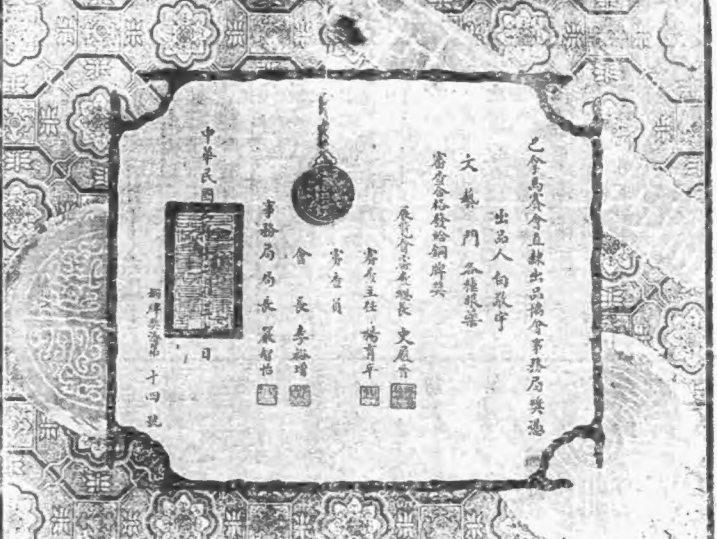 巴拿馬賽會直隸出品協會事務局獎憑
出品人 白敬宇
文藝門 各種眼藥
審查合格發給銅牌獎
展覽會審查總長 史履晉
審查主任
審查員
會長 李裕增
事務局局長 嚴智怡
中華民國
日
銅牌獎憑第十四號